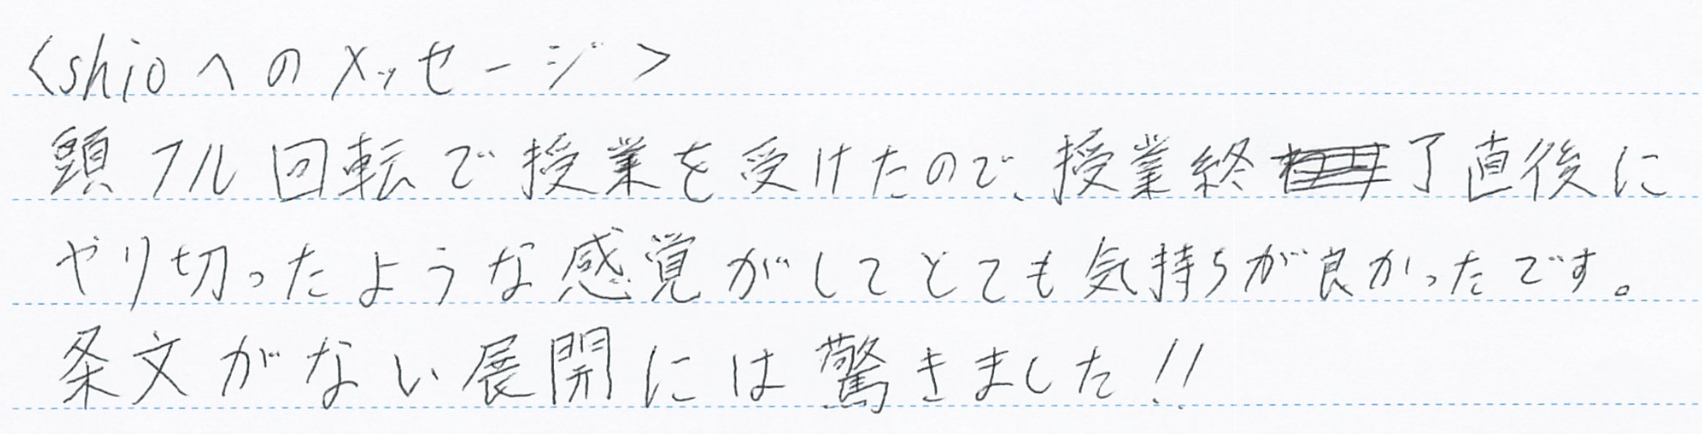 <shioへのメッセージ>
頭フル回転で授業を受けたので、授業終了直後に
やり切ったような感覚がしてとても気持ちが良かったです。
条文がない展開には驚きました!!